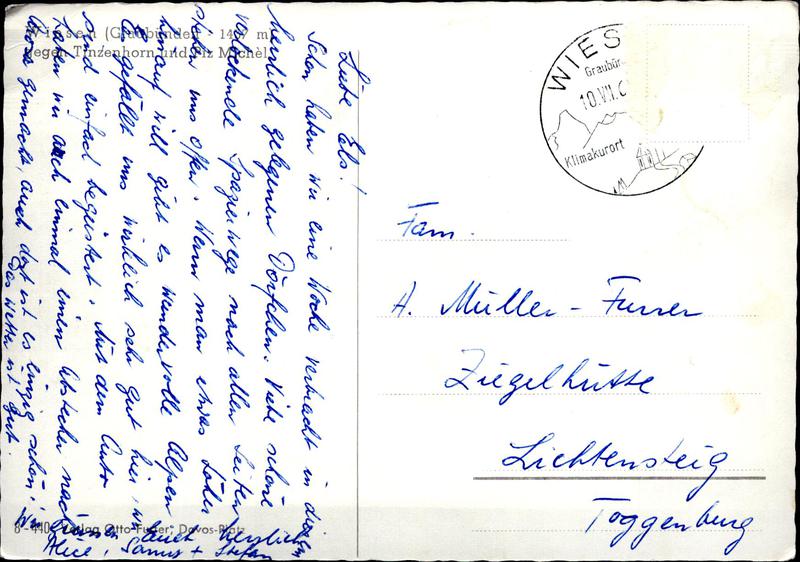 Wiesen (Graubünden) 1437 m
gegen Tinzenhorn und Piz Michèl
Liebe Eli!
Schon haben wir eine Woche verbracht in diesem
herrlich gelegenen Dörfchen. Viele schöne
verlockende Spazierwege nach allen Seiten
stehen uns offen. Wenn man etwas höher
hinauf will gibt es wundervolle Alpen
Es gefällt uns wirklich sehr gut hier, wir
sind einfach begeistert. Mit dem Auto
haben wir auch einmal einen Abstecher nach
Arosa gemacht, auch dort ist es einzig schön.
Das Wetter ist gut.
Wir grüssen Euch herzlich
Alice, + Stefan
Verlag Otto Furter, Davos-Platz
WIES
Graubün
10.VII.
Klimakurort
Fam.
A. Müller-Furrer
Ziegelhütte
Lichtensteig
Toggenburg